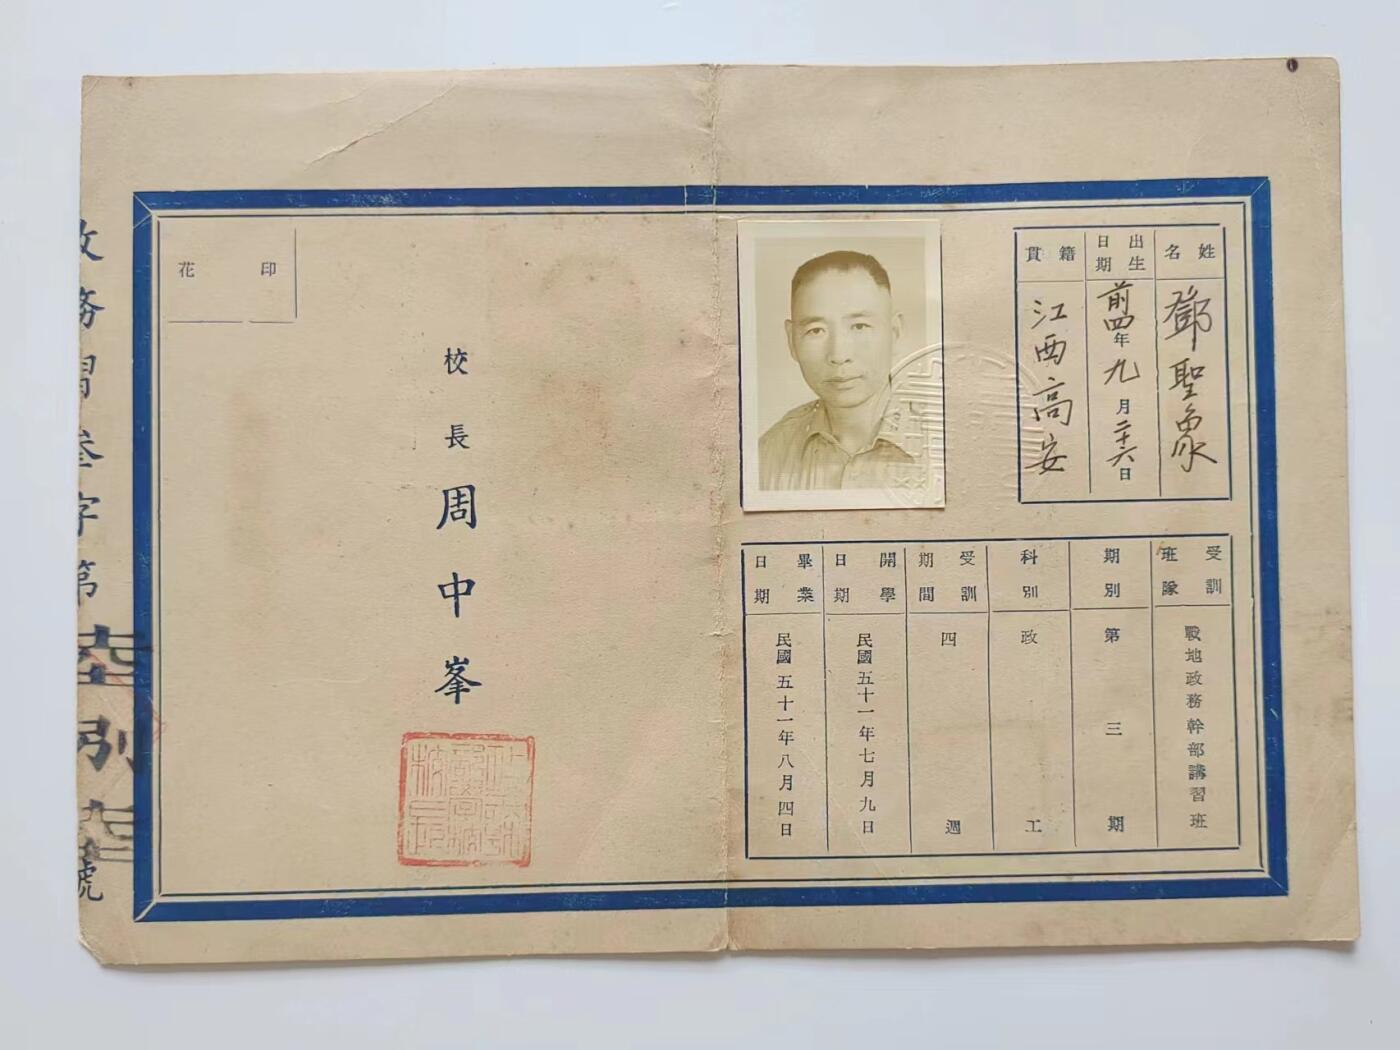 姓名
鄧聖象
出生日期
前四年九月二十六日
籍貫
江西高安
受訓班隊
戰地政務幹部講習班
期別
第三期
科別
政工
受訓期間
四週
開學日期
民國五十一年七月九日
畢業日期
民國五十一年八月四日
校長周中峯
印花
政務習叁字第
號